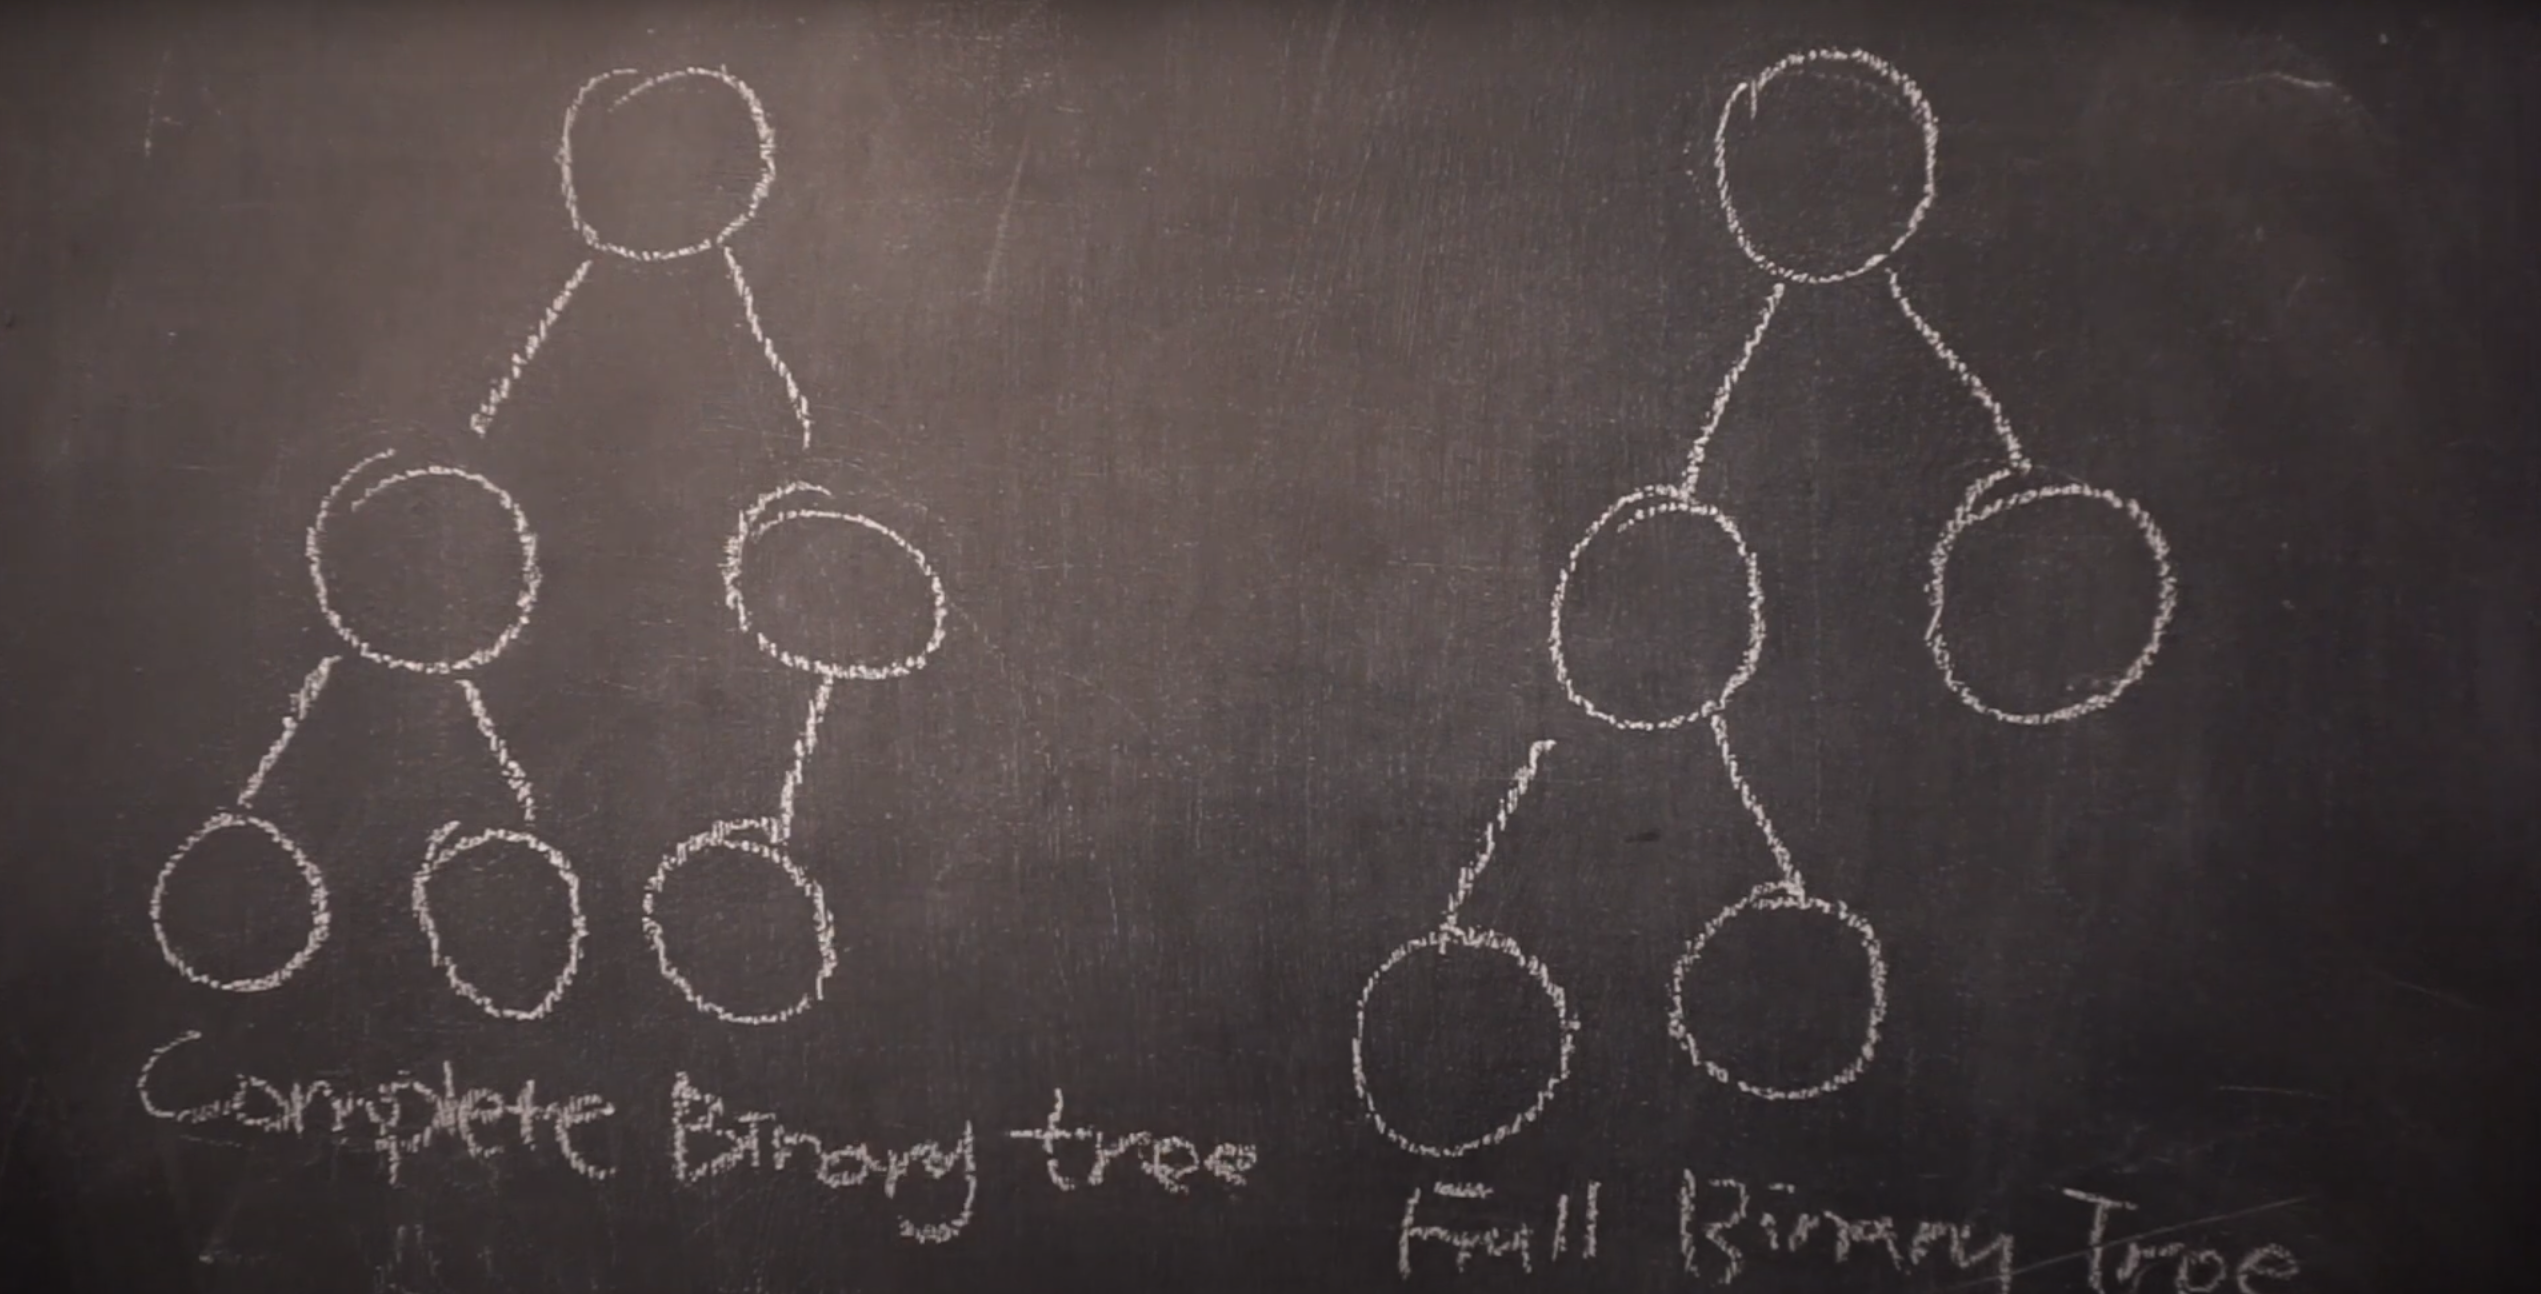 Complete Binary tree
Full Binary Tree